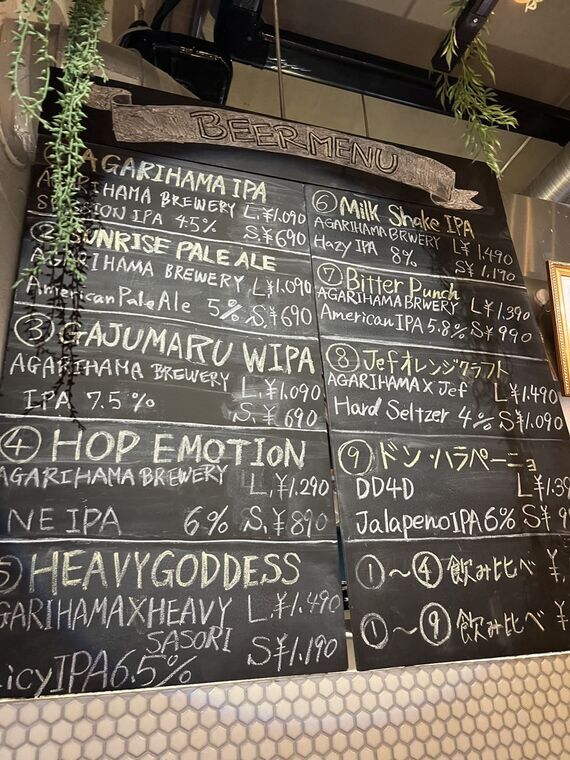 BEER MENU
AGARIHAMA IPA
AGARIHAMA BREWERY L,¥1.090
IPA 4.5% S.¥690
② SUNRISE PALE ALE
AGARIHAMA BREWERY L.¥1.090
American Pale Ale 5% S.¥690
③ GAJUMARU WIPA
AGARIHAMA BREWERY L.¥1.090
IPA 7.5% S.¥690
④ HOP EMOTION
AGARIHAMA BREWERY L.¥1.290
NE IPA 6% S.¥890
HEAVYGODDESS
AGARIHAMAXHEAVY L.¥1.490
SASORI
IPA 6.5% S¥1.190
⑥ Milk Shake IPA
AGARIHAMA BRWERY L¥1.490
Hazy IPA 8% S¥1.190
⑦ Bitter Punch
AGARIHAMA BRWERY L¥1.390
American IPA 5.8% S¥990
⑧ Jefオレンジクラフト
AGARIHAMA X Jef L¥1.490
Hard Seltzer 4% S¥1.090
⑨ ドン・ハラペーニョ
DD4D
Jalapeno IPA 6%
①～④飲み比べ ¥
①～⑨飲み比べ ¥